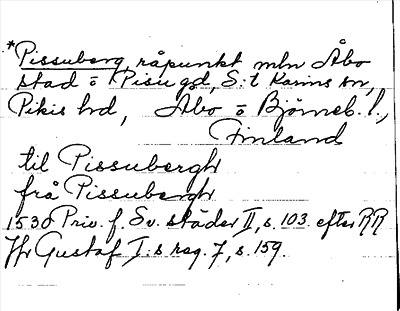 *Pissuberg, råpunkt mln Åbo
stad o Pisu gd, S:t Karins sn,
Pikis hd, Åbo o Björneb. l.,
Finland
til Pissubergh
frå Pissubergh
1530 Priv. f. Sv. städer II, s. 103 efter RR
Jfr Gustaf I:s reg. 7, s. 159.